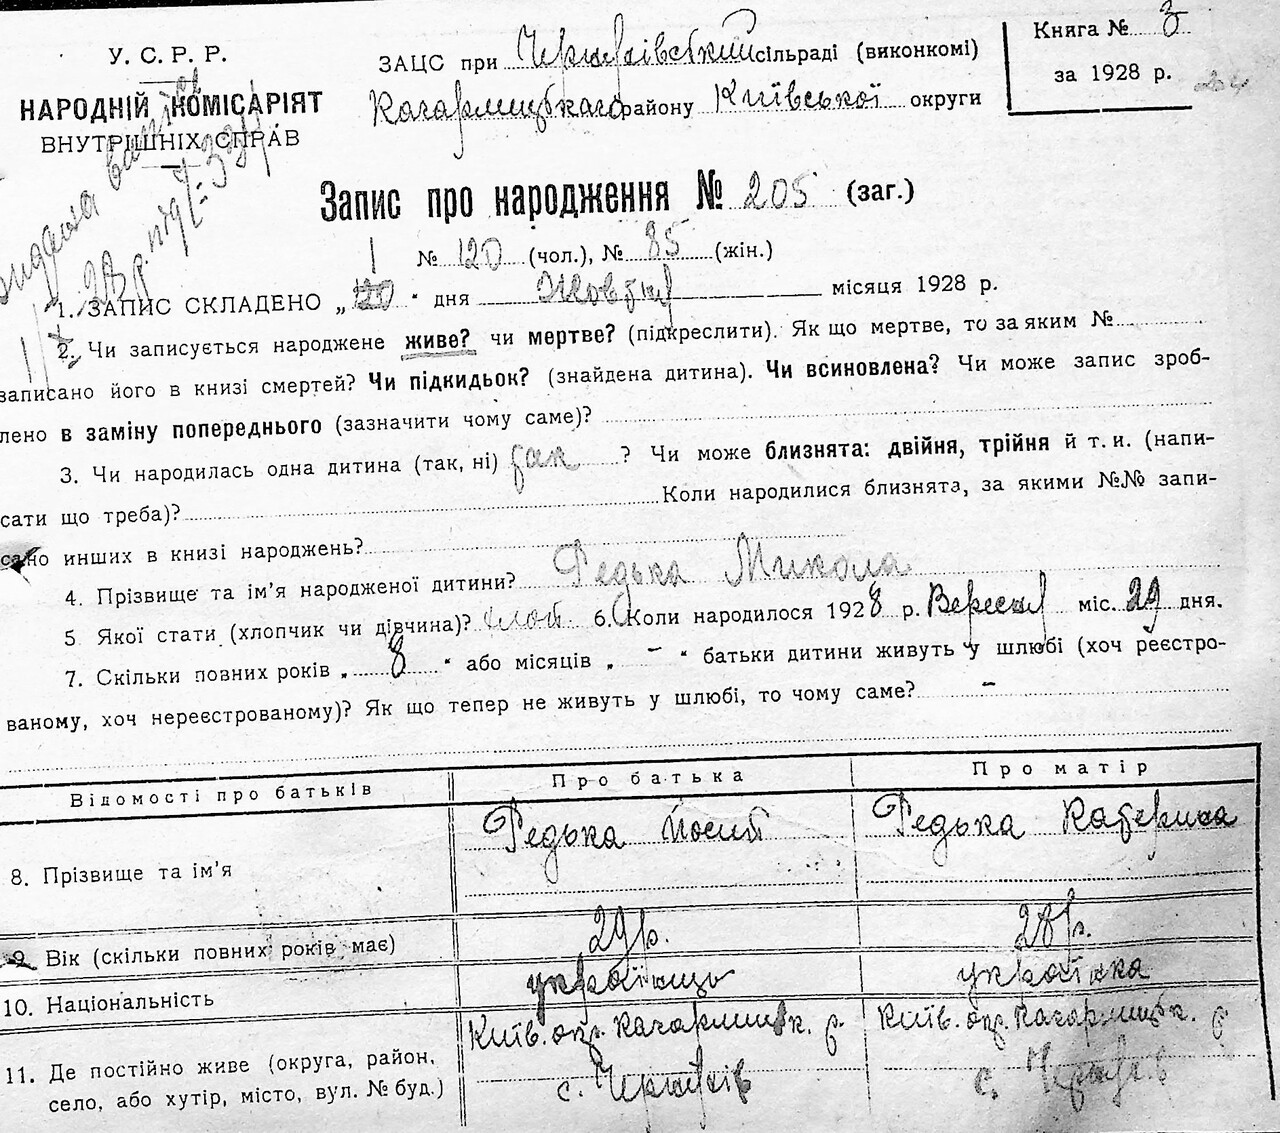 У. С. Р. Р.
НАРОДНІЙ КОМІСАРІЯТ
ВНУТРІШНІХ СПРАВ
ЗАЦС при сільраді (виконкомі)
Кагарлицького району Київської округи
Книга № 3
за 1928 р.
Запис про народження № 205 (заг.)
№ 120 (чол.), № 85 (жін.)
1. ЗАПИС СКЛАДЕНО „ 20 “ дня Жовтня місяця 1928 р.
2. Чи записується народжене живе? чи мертве? (підкреслити). Як що мертве, то за яким №
записано його в книзі смертей? Чи підкидьок? (знайдена дитина). Чи всиновлена? Чи може запис зроб-
лено в заміну попереднього (зазначити чому саме)?
3. Чи народилась одна дитина (так, ні) так ? Чи може близнята: двійня, трійня й т. и. (напи-
сати що треба)? Коли народилися близнята, за якими №№ запи-
сано инших в книзі народжень?
4. Прізвище та ім’я народженої дитини? Редька Микола
5. Якої стати (хлопчик чи дівчина)? 6. Коли народилося 1928 р. Вересня міс. 29 дня.
7. Скільки повних років „ 8 “ або місяців „ – “ батьки дитини живуть у шлюбі (хоч реєстро-
ваному, хоч нереєстрованому)? Як що тепер не живуть у шлюбі, то чому саме? –
Відомості про батьків Про батька Про матір
8. Прізвище та ім’я Редька Йосип Редька Катерина
9. Вік (скільки повних років має) 29 р. 28 р.
10. Національність українць українка
11. Де постійно живе (округа, район, Київ. окр. Кагарлицьк. р Київ. окр. Кагарлицьк. р
село, або хутір, місто, вул. № буд.) с. с.